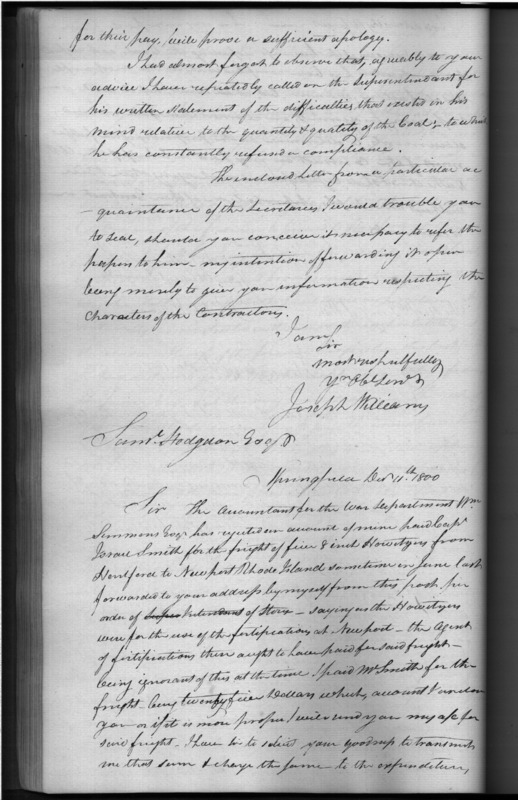 for their pay, will prove a sufficient apology.
I had almost forgot to observe that, agreeably to your
advice I have repeatedly called on the Superintendant for
his written statement of the difficulties that existed in his
mind relative to the quantity & quality of the Coal, to which
he has constantly refused a compliance.
The inclosed Letter from a particular ac
-quaintance of the Secretaries, I would trouble you
to seal, should you conceive it necessary to refer the
papers to him my intention of forwarding it open
being merely to give you information respecting the
characters of the Contractors.
I am
Sir
most respectfully
Yr Obt Servt
Joseph Williams
Saml. Hodgdon Esqr
Springfield Decr 11th 1800
Sir The Accountant for the War Department Wm
Simmons Esqr has rejected an account of mine paid Capt
Israel Smith for the fright of five 8 inch Howitzers from
Hartford to Newport Rhode Island sometime in June last
forwarded to your address by myself from this post, per
order of Superintendant of Stores - saying as the Howitzers
were for the use of the fortifications at Newport - the Agent
of fortifications there ought to have paid for said fright -
being ignorant of this at the time I paid Mr Smith for the
fright being twenty five Dollars which account I
you or if it is more proper I will send you my for
said fright - I have Sir to solicit your goodness to transmit
me that sum & charge the same to the expenditures,